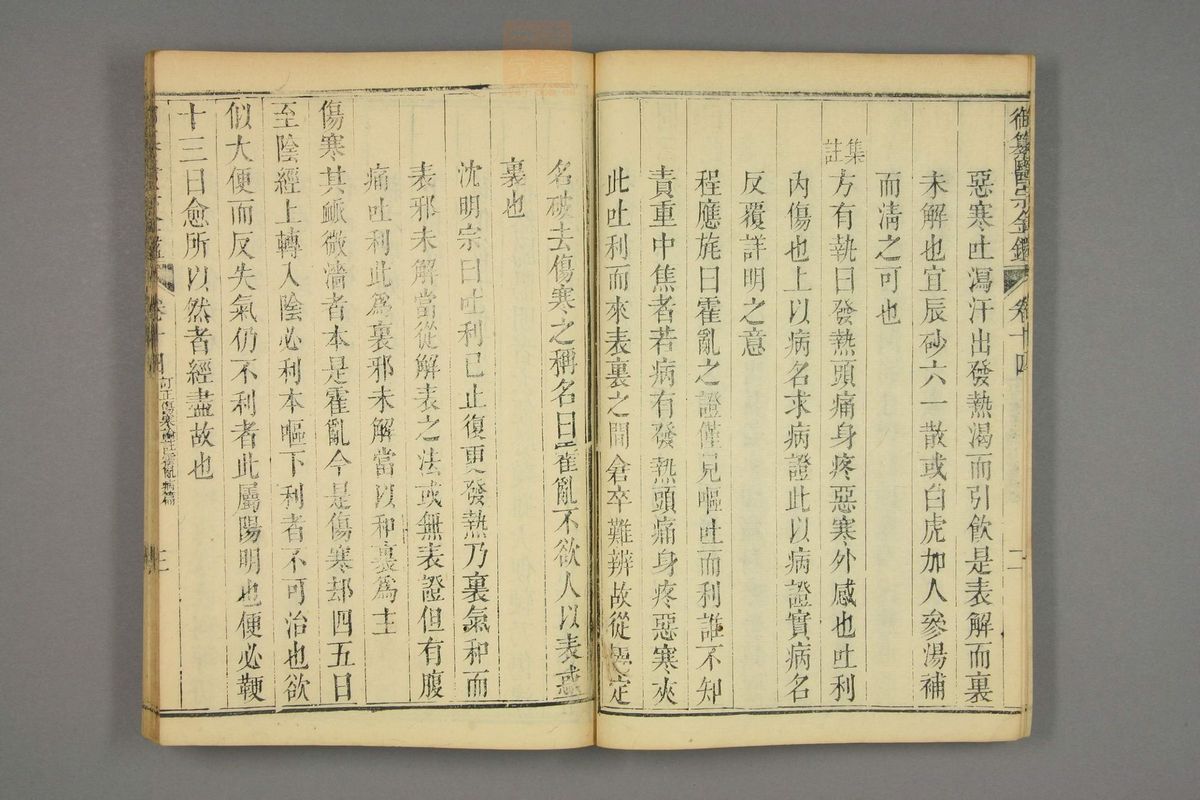 御纂醫宗金鑑 卷十四 二
惡寒吐瀉汗出發熱渴而引飲是表解而裏
未解也宜辰砂六一散或白虎加人參湯補
而淸之可也
集註
方有執曰發熱頭痛身疼惡寒外感也吐利
內傷也上以病名求病證此以病證實病名
反覆詳明之意
程應旄曰霍亂之證僅見嘔吐而利誰不知
責重中焦者若病有發熱頭痛身疼惡寒夾
此吐利而來表裏之間倉卒難辨故從 定
名破去傷寒之稱名曰霍亂不欲人以表惑
裏也
沈明宗曰吐利已止復更發熱乃裏氣和而
表邪未解當從解表之法或無表證但有腹
痛吐利此爲裏邪未解當以和裏爲主
傷寒其脈微濇者本是霍亂今是傷寒却四五日
至陰經上轉入陰必利本嘔下利者不可治也欲
似大便而反失氣仍不利者此屬陽明也便必鞕
十三日愈所以然者經盡故也
卷十四 訂正傷寒論註霍亂病篇